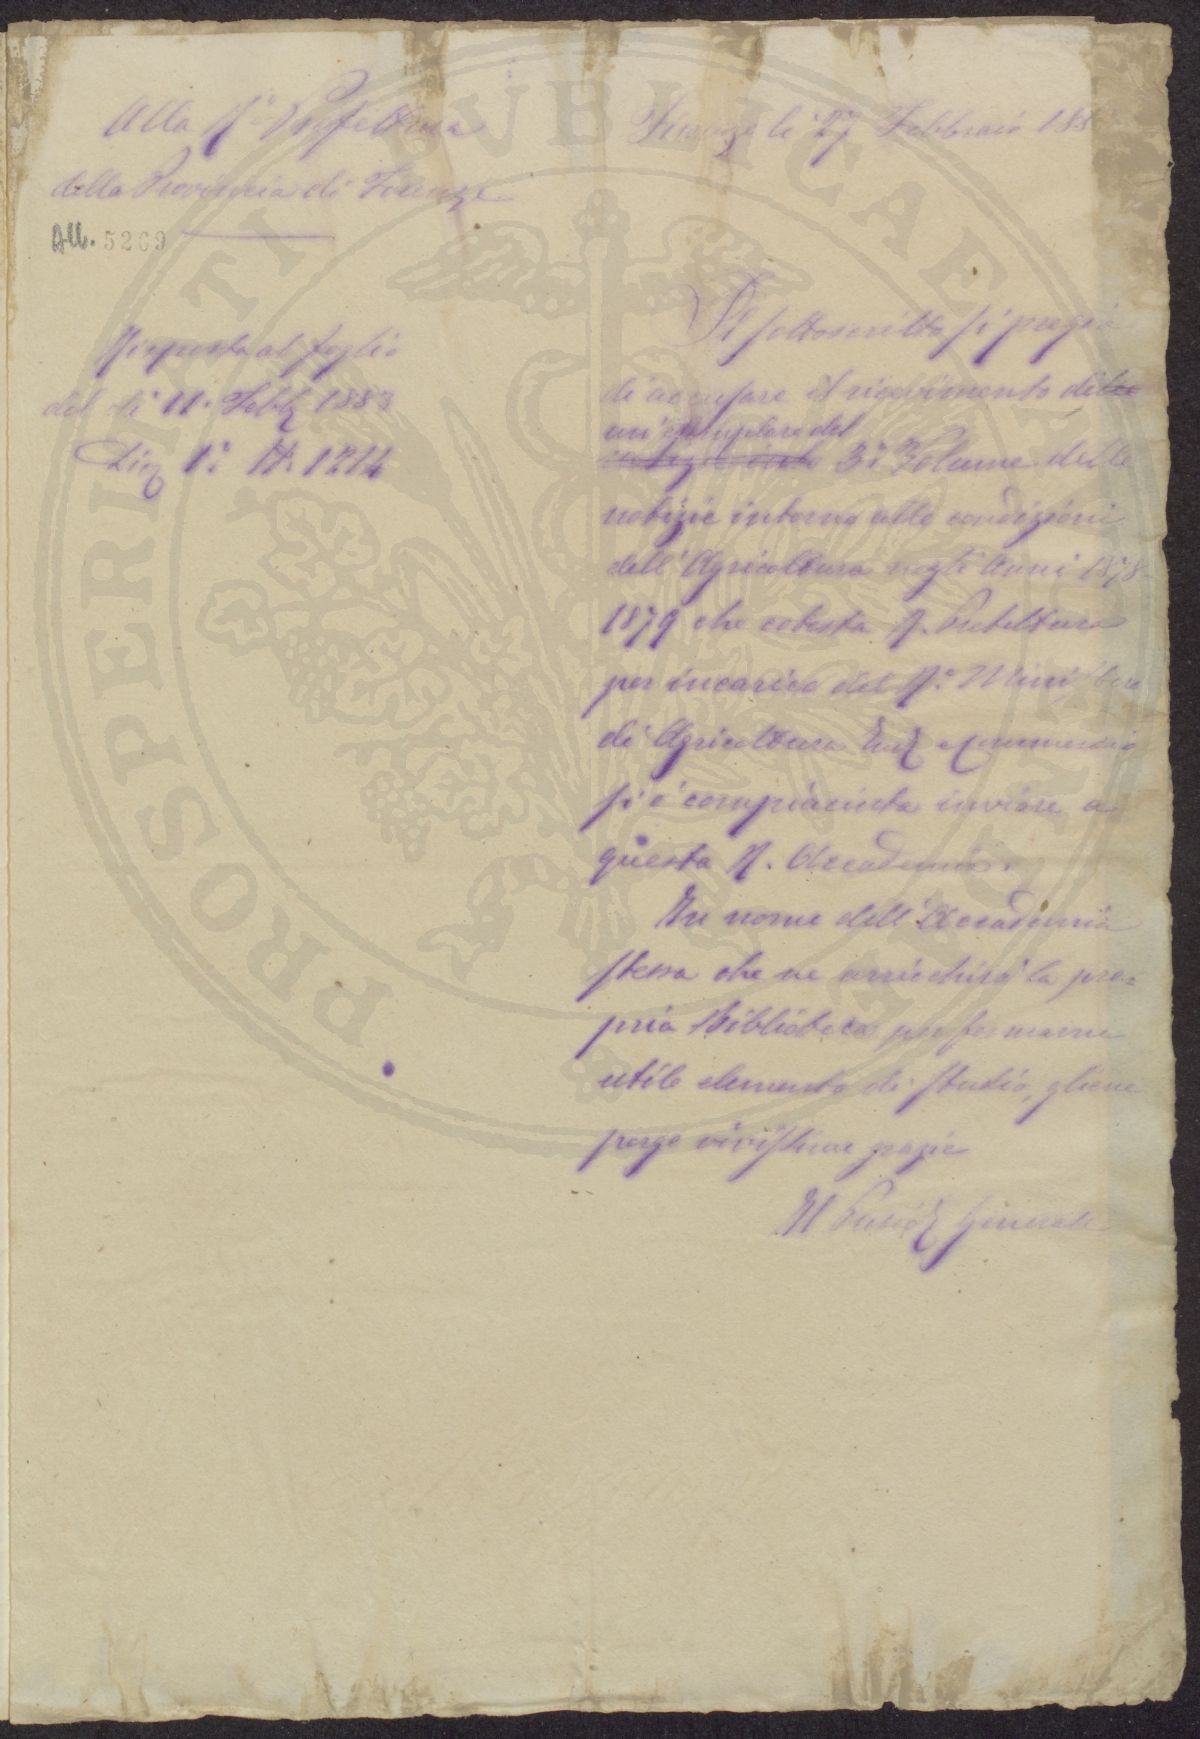 Alla R.a Prefettura
della Provincia di Firenze
All. 5269
Firenze li 27 Febbraio 188
Risposta al foglio
del dì 11. Febb 1883
Div 1a N. 1214
Il sottoscritto si pregia
di accusare il ricevimento di
un esemplare del
3o Volume delle
notizie intorno alle condizioni
dell'Agricoltura negli Anni 1878
1879 che cotesta R. Prefettura
per incarico del R.o Ministero
di Agricoltura Ind e Commercio
si è compiaciuta inviare a
questa R. Accademia.
In nome dell'Accademia
stessa che ne arricchirà la pro-
pria Biblioteca per formarne
utile elemento di studio, gliene
porgo vivissime grazie
Il Presid Generale
PROSPERITATI PUBLICAE